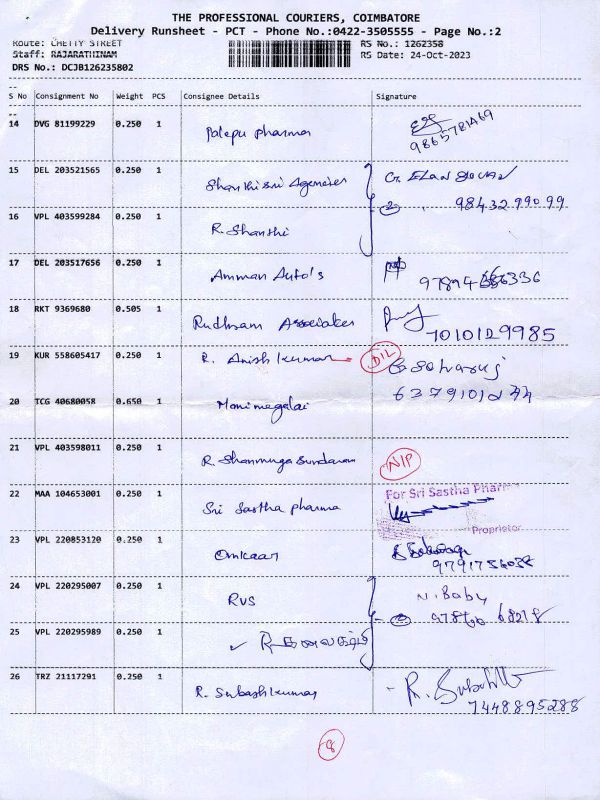 THE PROFESSIONAL COURIERS, COIMBATORE
Delivery Runsheet - PCT - Phone No.:0422-3505555 - Page No.:2
Route: CHETTY STREET RS No.: 1262358
Staff: RAJARATHINAM RS Date: 24-Oct-2023
DRS No.: DCJB126235802
S No Consignment No Weight PCS Consignee Details Signature
14 DVG 81199229 0.250 1 Palepu pharma
15 DEL 203521565 0.250 1 Shanthi sri Agencies
2 9843299099
16 VPL 403599284 0.250 1 R. Shanthi
17 DEL 203517656 0.250 1 Amman Auto's
18 RKT 9369680 0.505 1 Rudhram Associates
7010129985
19 KUR 558605417 0.250 1 R. Anish kumar D/L
20 TCG 40680058 0.650 1 Manimegalai
21 VPL 403598011 0.250 1 R. Shanmuga Sundaram N/P
22 MAA 104653001 0.250 1 Sri Sastha pharma For Sri Sastha Phar
Proprietor
23 VPL 220853120 0.250 1 Omkaar
24 VPL 220295007 0.250 1 RVS N. Baby
25 VPL 220295989 0.250 1
26 TRZ 21117291 0.250 1 R. Subash kumar
7448895288
8